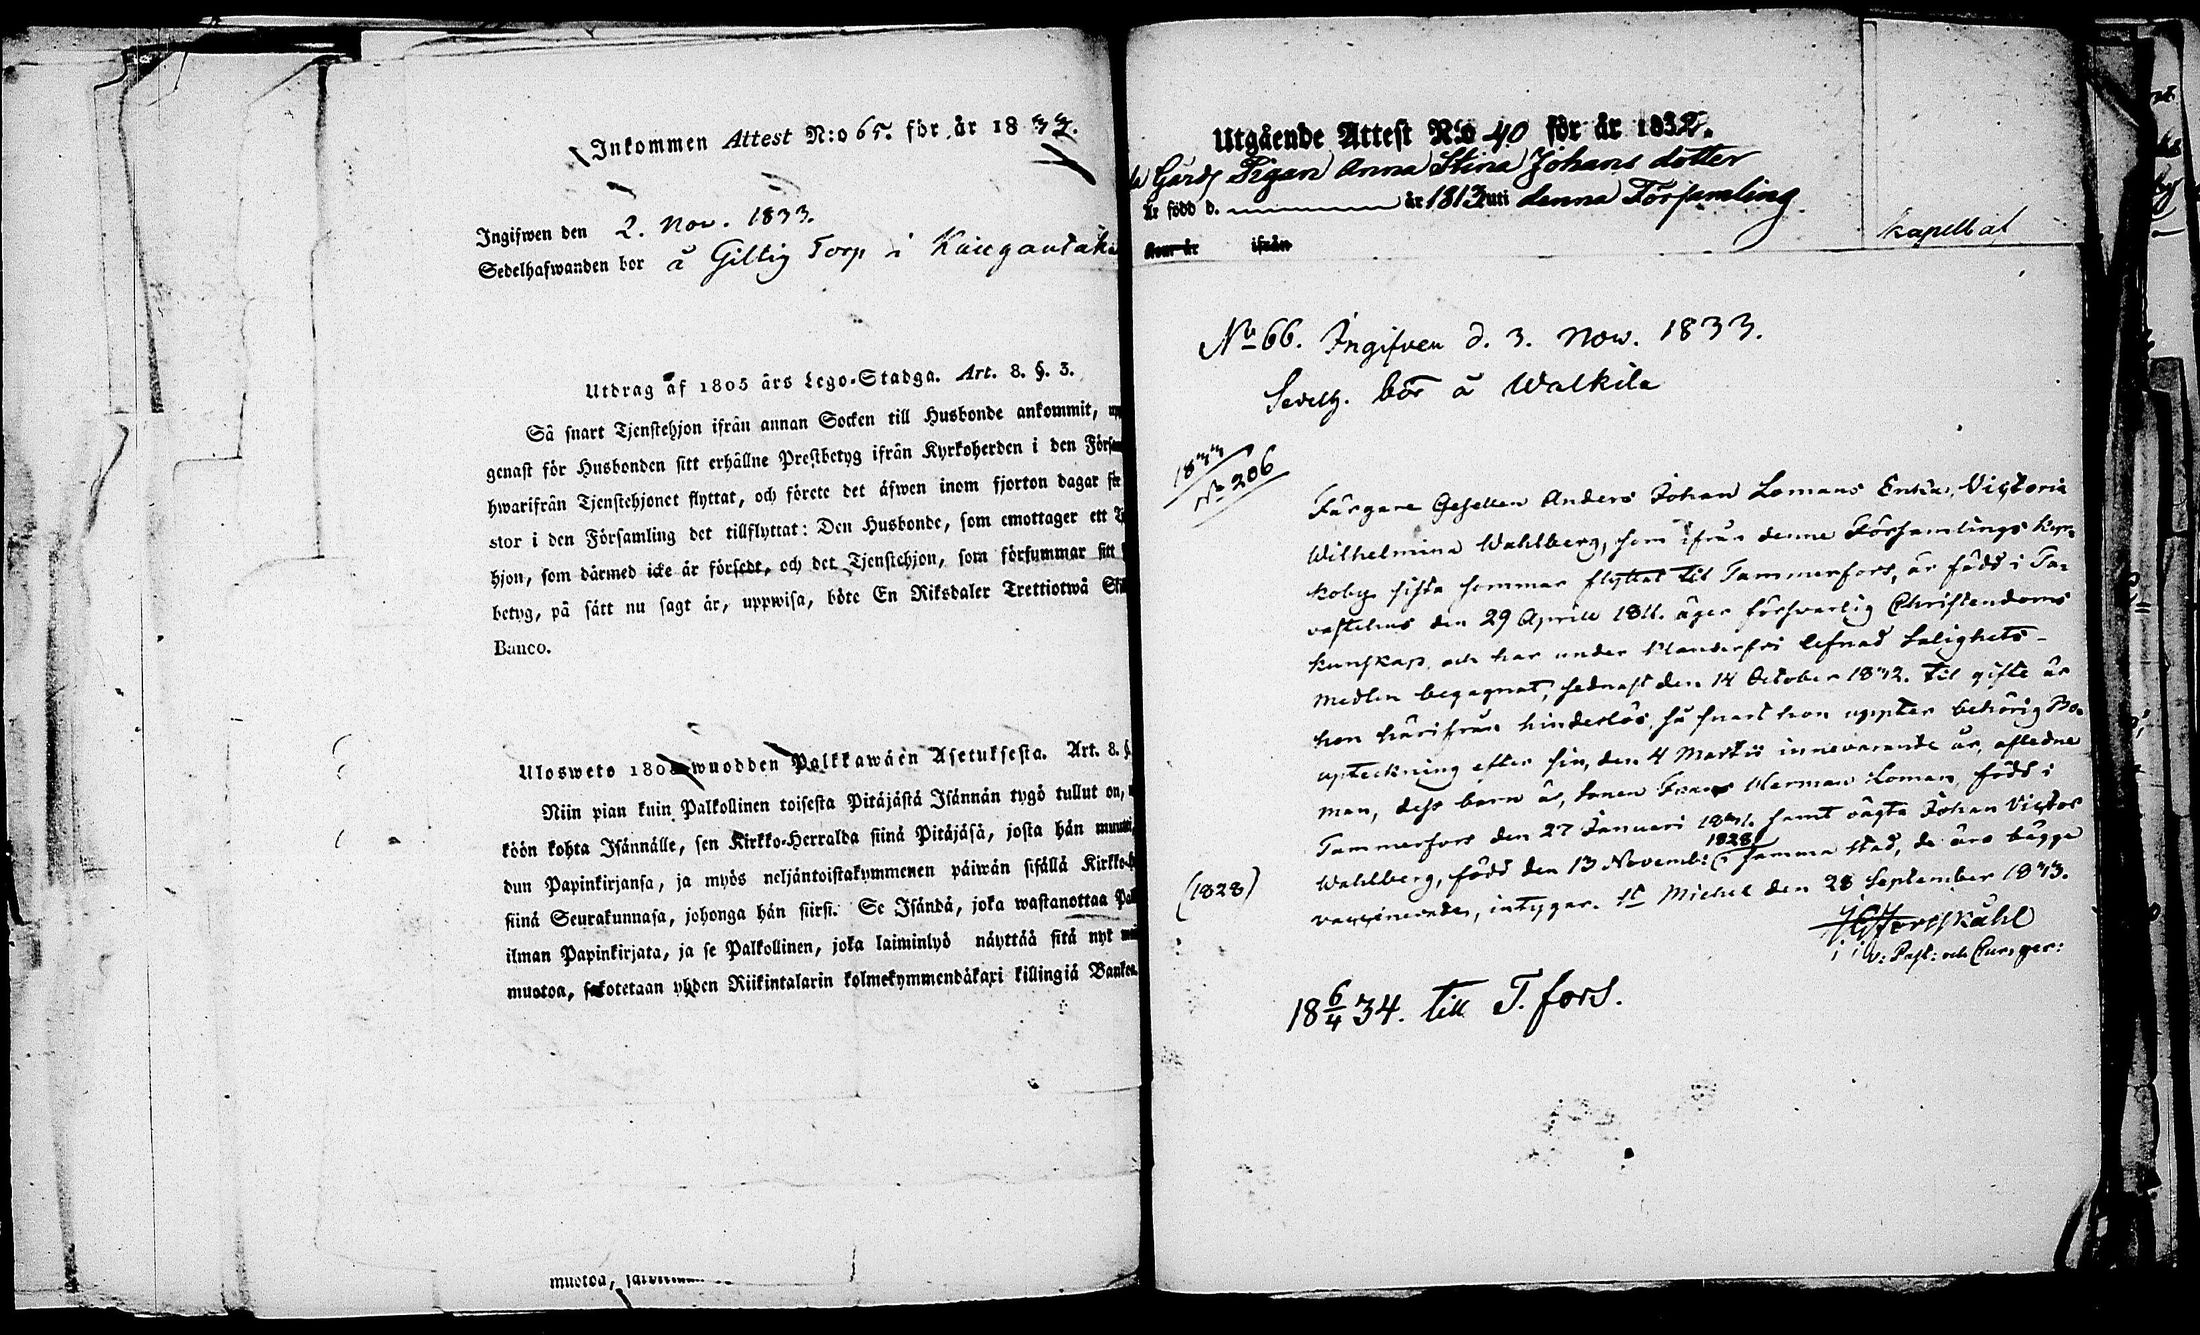 Inkommen Attest N:o 65. för år 1833.
Ingifwen den 2. Nov. 1833.
Sedelhafwanden bor å Gillig Torp i Kaugantaka
Utdrag af 1805 års Lego-Stadga. Art. 8. §. 3.
Så snart Tjenstehjon ifrån annan Socken till Husbonde ankommit,
genast för Husbonden sitt erhållne Prestbetyg ifrån Kyrkoherden i den Förs
hwarifrån Tjenstehjonet flyttat, och förete det äfwen inom fjorton dagar för
stor i den Församling det tillflyttat: Den Husbonde, som emottager ett
hjon, som därmed icke är försedt, och det Tjenstehjon, som försummar sitt
betyg, på sätt nu sagt är, uppwisa, böte En Riksdaler Trettiotwå
Banco.
Ulosweto 1805 wuodden Palkkawäen Asetuksesta. Art. 8. §
Niin pian kuin Palkollinen toisesta Pitäjästä Isännän tygö tullut on,
köön kohta Isännälle, sen Kirkko-Herralda siinä Pitäjäsä, josta hän muutti,
dun Papinkirjansa, ja myös neljäntoistakymmenen päiwän sisällä Kirkko-
siinä Seurakunnasa, johonga hän siirsi. Se Isändä, joka wastanottaa
ilman Papinkirjata, ja se Palkollinen, joka laiminlyö näyttää sitä nyt
muotoa, sakotetaan yhden Riikintalarin kolmekymmendäkaxi killingiä Banko
muotoa,
Utgående Attest N:o 40 för år 1832.
Gårds Pigan Anna Stina Johans dotter
Är född d. år 1813 uti denna Församling
kom år ifrån
kapell af
No 66. Ingifven d. 3. Nov. 1833.
Sedelh. bor å Walkila
1833
No 206
Färgare Gesellen Anders Johan Lomans Enka, Victoria
Wilhelmina Wahlberg, som ifrån denne Församlings Kyr-
koby sista sommar flyttat til Tammerfors, är född i Ta-
vastehus den 29 Aprill 1811. äger försvarlig Christendoms
kunskap, och har under klanderfri lefnad Salighets-
medlen begagnat, sednast den 14 October 1832. til gifte är
hon härifrån hinderlös, så snart hon uppter behörig Bo-
upteckning efter sin, den 4 Martii innevarande år, aflidne
man, dess barn är, Sonen Frans Herman Loman, född i
Tammerfors den 27 Januari 1831. samt oägta Johan Victor
1828
Wahlberg, född den 13 Novemb: i samma stad, de äro bägge
(1828)
vaccinerade, intygar. St Michel den 28 September 1833.
HG Forsskåhl
v: Past: och Cur, ger:
18 6/4 34. till T.fors.